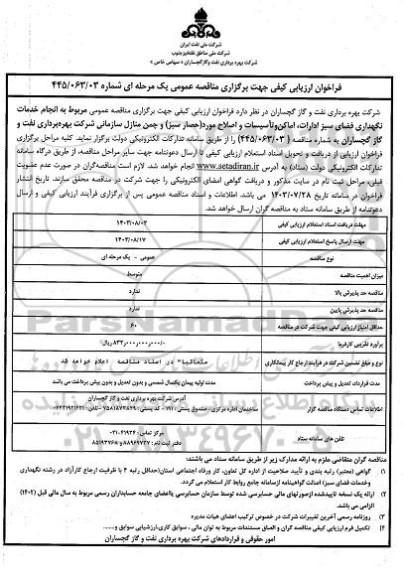 شرکت ملی نفت ایران
شرکت ملی مناطق نفتخیز جنوب
شرکت بهره برداری نفت و گاز گچساران « سهامی خاص »
فراخوان ارزیابی کیفی جهت برگزاری مناقصه عمومی یک مرحله ای شماره ۴۴۵/۰۶۳/۰۳
شرکت بهره برداری نفت و گاز گچساران در نظر دارد فراخوان ارزیابی کیفی جهت برگزاری مناقصه عمومی مربوط به انجام خدمات
نگهداری فضای سبز ادارات، اماکن‌وتأسیسات و اصلاح مورد(حصار سبز) و چمن منازل سازمانی شرکت بهره‌برداری نفت و
گاز گچساران به شماره مناقصه ( ۴۴۵/۰۶۳/۰۳ ) را از طریق سامانه تدارکات الکترونیکی دولت برگزار نماید. کلیه مراحل برگزاری
فراخوان ارزیابی از دریافت و تحویل اسناد استعلام ارزیابی کیفی تا ارسال دعوتنامه جهت سایر مراحل مناقصه، از طریق درگاه سامانه
تدارکات الکترونیکی دولت (ستاد) به آدرس www.setadiran.ir انجام خواهد شد. لازم است مناقصه‌گران در صورت عدم عضویت
قبلی، مراحل ثبت نام در سایت مذکور و دریافت گواهی امضای الکترونیکی را جهت شرکت در مناقصه محقق سازند. تاریخ انتشار
فراخوان در سامانه تاریخ ۱۴۰۳/۰۷/۲۸ می باشد. اطلاعات و اسناد مناقصه عمومی پس از برگزاری فرآیند ارزیابی کیفی و ارسال
دعوتنامه از طریق سامانه ستاد به مناقصه گران ارسال خواهد شد.
مهلت دریافت اسناد استعلام ارزیابی کیفی ۱۴۰۳/۰۸/۰۳
مهلت ارسال پاسخ استعلام ارزیابی کیفی ۱۴۰۳/۰۸/۱۷
نوع مناقصه عمومی - یک مرحله ای
میزان اهمیت مناقصه متوسط
مناقصه حد پذیرش بالا ندارد
مناقصه حد پذیرش پایین ندارد
حداقل امتیاز ارزیابی کیفی جهت شرکت در مناقصه ۶۰
برآورد تقریبی کارفرما
نوع و مبلغ تضمین شرکت در فرآیند ارجاع کار پیمانکاری متعاقبا" در اسناد مناقصه اعلام خواهد شد
مدت قرارداد، تعدیل و پیش پرداخت مدت اولیه پیمان یکسال شمسی و بدون تعدیل و بدون پیش پرداخت می باشد
اطلاعات تماس دستگاه مناقصه گزار آدرس شرکت بهره برداری نفت و گاز گچساران
تلفن های سامانه ستاد مرکز تماس: ۴۱۹۳۴-۰۲۱
دفتر ثبت نام: ۸۸۹۶۹۷۳۷ و ۸۵۱۹۳۷۶۸
مناقصه گران متقاضی ملزم به ارائه مدارک زیر از طریق سامانه ستاد می باشند:
۱) گواهی (معتبر) رتبه بندی و تأیید صلاحیت از اداره کل تعاون، کار ورفاه اجتماعی استان(حداقل رتبه ۴ با ظرفیت ارجاع کارآزاد در رشته نگهداری
وخدمات فضای سبز) اصالت گواهینامه ازسامانه جامع روابط کار استعلام می گردد.
۲) ارائه یک نسخه تاییدشده ازصورتهای مالی حسابرسی شده توسط سازمان حسابرسی یااعضای جامعه حسابداران رسمی مربوط به سال مالی قبل (۱۴۰۲)
الزامی می باشد.
۳) روزنامه رسمی آخرین تغییرات شرکت در خصوص ترکیب اعضای هیات مدیره
۴) تکمیل فرم ارزیابی کیفی مناقصه گران و الصاق مستندات مربوط به توان مالی ، سوابق کاری،ارزشیابی سوابق و......
امور حقوقی و قراردادهای شرکت بهره برداری نفت و گاز گچساران